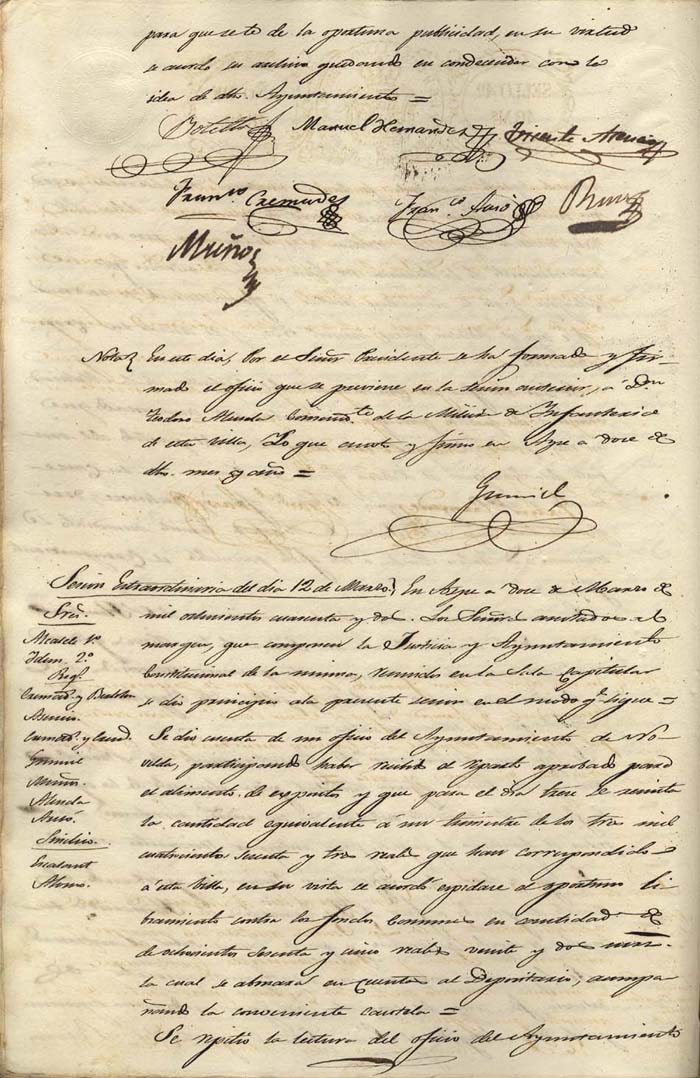 para que se le de la oportuna publicidad, en su virtud
se acordo su archivo quedando en condecender con la
idea de dho. Ayuntamiento =
Botella Manuel Hernandez Vicente Atencia
Franco. Cremades Franco. Ausó
Muñoz
Nota En este dia, Por el Señor Presidente se ha formado y fir-
mado el oficio que se previene en la sesion anterior, á Don
Teodoro Alenda Comandte. de la Milicia de Infanteria
de esta Villa, Lo que anoto y firmo en Aspe a doce de
dho. mes y año =
Sesion Extraordinaria del dia 12 de Marzo} En Aspe a doce de Marzo de
mil ochocientos cuarenta y dos. Los Señores anotados al
margen, que componen la Justicia y Ayuntamiento
Constitucional de la misma, reunidos en la Sala Capitular
se dio principio ala presente sesion en el modo qe. sigue =
Sres.
Alcalde 1º
Idem. 2º
Regs.
Cremads. y
Muñoz.
Alenda
Ausó.
Sindicos.
Escalant
Alonso.
Se dio cuenta de un oficio del Ayuntamiento de No-
velda, participando haber recibido el reparto aprobado para
el alimento de expositos y que para el dia trece se remita
la cantidad equivalente á un trimestre de los tres mil
cuatrocientos sesenta y tres reales que han correspondido
á esta Villa, en su vista se acordó expidase el oportuno li-
bramiento contra los fondos Comunes en cantidad de
de ochocientos sesenta y cinco reales veinte y dos mrs.
la cual se abonará en cuenta al Depositario, acompa
ñando la conveniente cautela =
Se repitio la lectura del oficio del Ayuntamiento